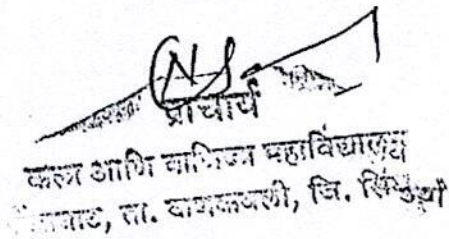 प्राचार्य
कला आणि वाणिज्य महाविद्यालय
ता. कणकवली, जि. सिंधुदुर्ग